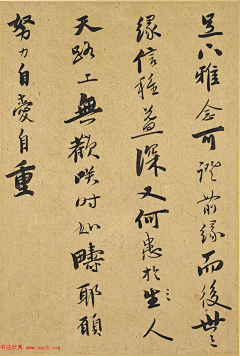 足下雅念可證前緣而後世之
緣信種益深又何患於生生人
天路上無歡咲時如疇耶願
努力自愛自重